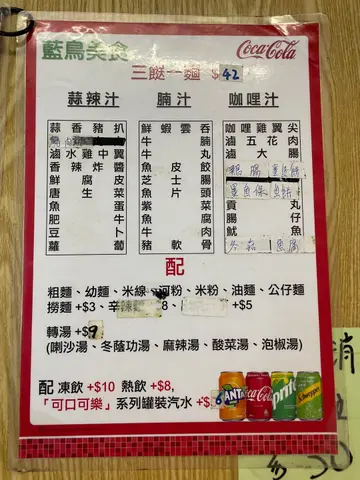 藍鳥美食
Coca-Cola
三餸一麵 $42
蒜辣汁
腩汁
咖哩汁
蒜香豬扒
滷水雞中翼
香辣炸醬
鮮腐皮
唐生菜
魚蛋
肥牛
豆卜
蘿蔔
鮮蝦雲吞
牛腩
牛丸
魚皮餃
芝士腸
魚片頭
紫菜
魚腐
牛肉
豬軟骨
咖哩雞翼尖
滷五花肉
滷大腸
貢丸
腸仔
魷魚
配
粗麵、幼麵、米線、河粉、米粉、油麵、公仔麵
撈麵+$3、辛辣 8、 +$5
轉湯+$9
(喇沙湯、冬蔭功湯、麻辣湯、酸菜湯、泡椒湯)
配 凍飲 +$10 熱飲 +$8,
「可口可樂」系列罐裝汽水 +$6
FANTA
Coca-Cola
Sprite
Schweppes
50